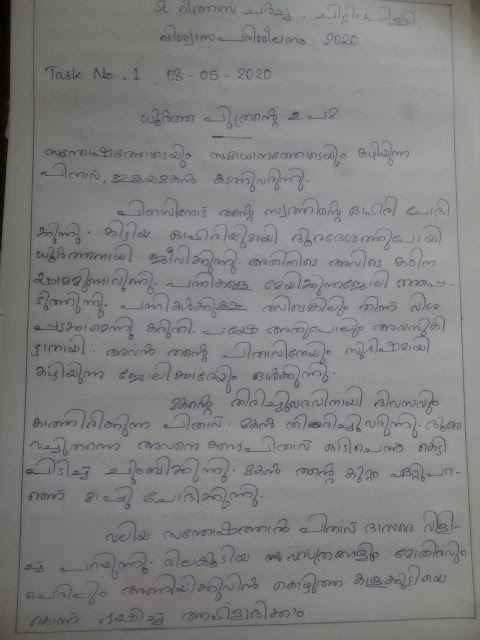 St. റീത്താസ് ചർച്ച്, ചിറ്റിലപ്പിള്ളി.
വിശ്വാസപരിശീലനം 2020
Task No. 1, 08-05-2020
ധൂർത്ത പുത്രന്റെ ഉപമ
സന്തോഷത്തോടെയും സമാധാനത്തോടെയും കഴിയുന്ന
പിതാവ്, ഇളയമകൻ കടന്നുവരുന്നു.
പിതാവിനോട് തന്റെ സ്വത്തിന്റെ ഓഹരി ചോദി
ക്കുന്നു. കിട്ടിയ ഓഹരിയുമായി ദൂരദേശത്തുപോയി
ധൂർത്തനായി ജീവിക്കുന്നു. അതിനിടെ അവിടെ കഠിന
ക്ഷാമമുണ്ടാവുന്നു. പന്നികളെ മേയിക്കുന്നജോലി തരപ്പെ
ടുത്തുന്നു. പന്നികൾക്കുള്ള തവിടെങ്കിലും തിന്ന് വിശ
പ്പടക്കാമെന്നു കരുതി. പക്ഷേ അതുപോലും അവനുകി
ട്ടാതായി. അവൻ തന്റെ പിതാവിനേയും സുഭിഷമായി
കഴിയുന്ന ജോലിക്കാരേയും ഓർക്കുന്നു.
മകന്റെ തിരിച്ചുവരവിനായി ദിവസവും
കാത്തിരിക്കുന്ന പിതാവ്. മകൻ തിരിച്ചുവരുന്നു. ദൂരെ
വച്ചുതന്നെ അവനെ കണ്ടപിതാവ് ഓടിചെന്നു കെട്ടി
പിടിച്ച് ചുംബിക്കുന്നു. മകൻ തന്റെ കുറ്റം ഏറ്റുപറ-
ഞ്ഞ് മാപ്പു ചോദിക്കുന്നു.
വലിയ സന്തോഷത്താൽ പിതാവ് ദാസരെ വിളി-
ച്ച് പറയുന്നു. വിലകൂടിയ വസ്ത്രങ്ങളും മോതിരവും
ചെരിപ്പും അണിയിക്കുവിൻ കൊഴുത്ത കാളക്കുട്ടിയെ
കൊന്ന് ഭക്ഷിച്ച് ആഹ്ളാദിക്കാം.